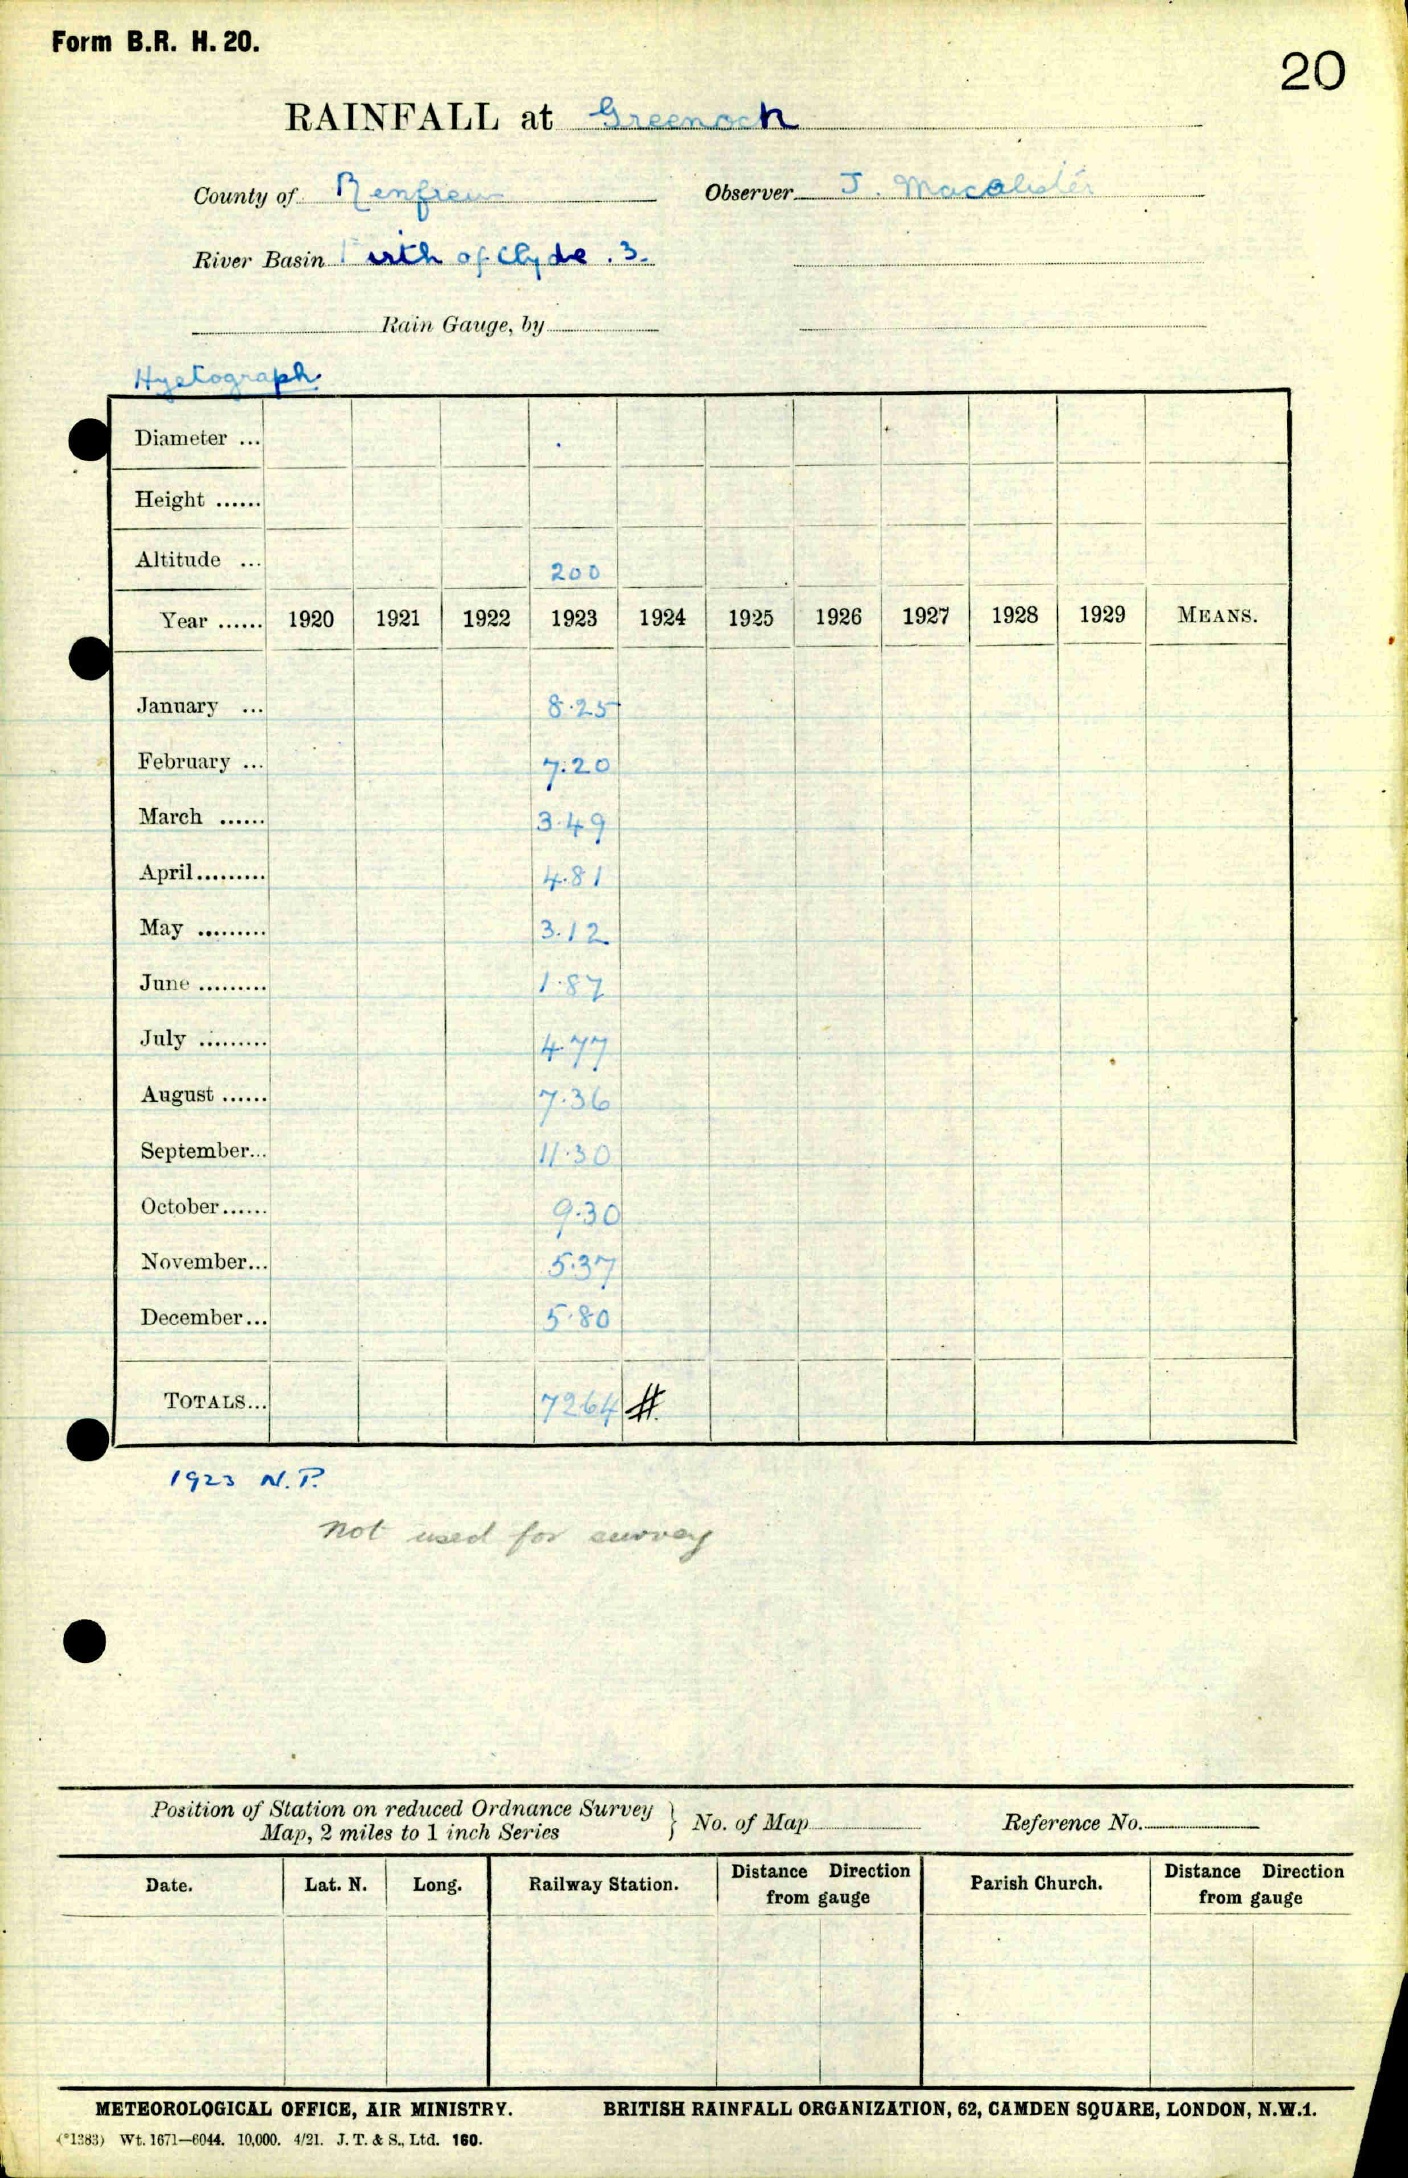 Form B.R. H. 20.
20
RAINFALL at Greenock
County of Renfrew Observer J. Macalister
River Basin Firth of Clyde . 3.
Rain Gauge, by
Hyetograph
Diameter ...
Height ......
Altitude ... 200
Year ...... 1920 1921 1922 1923 1924 1925 1926 1927 1928 1929 MEANS.
January ... 8.25
February ... 7.20
March ...... 3.49
April......... 4.81
May ......... 3.12
June ......... 1.87
July ......... 4.77
August ...... 7.36
September... 11.30
October...... 9.30
November... 5.37
December... 5.80
TOTALS... 72.64 #
1923 N.P.
Not used for survey
Position of Station on reduced Ordnance Survey
Map, 2 miles to 1 inch Series } No. of Map Reference No.
Date. Lat. N. Long. Railway Station. Distance Direction from gauge Parish Church. Distance Direction from gauge
METEOROLOGICAL OFFICE, AIR MINISTRY. BRITISH RAINFALL ORGANIZATION, 62, CAMDEN SQUARE, LONDON, N.W.1.
(*1383) Wt. 1671—6044. 10,000. 4/21. J. T. & S., Ltd. 160.